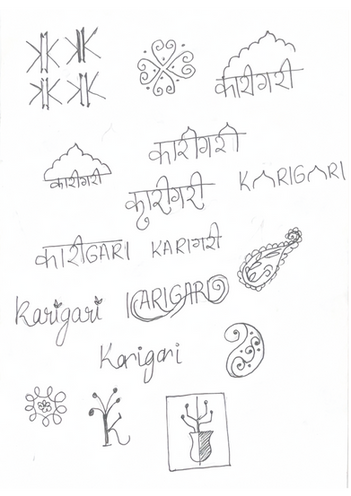 कारीगरी
कारीगरी
कारीगरी
कारीगरी
KARIGARI
कारीGARI
KARIगरी
Karigari
KARIGARI
Karigari
K